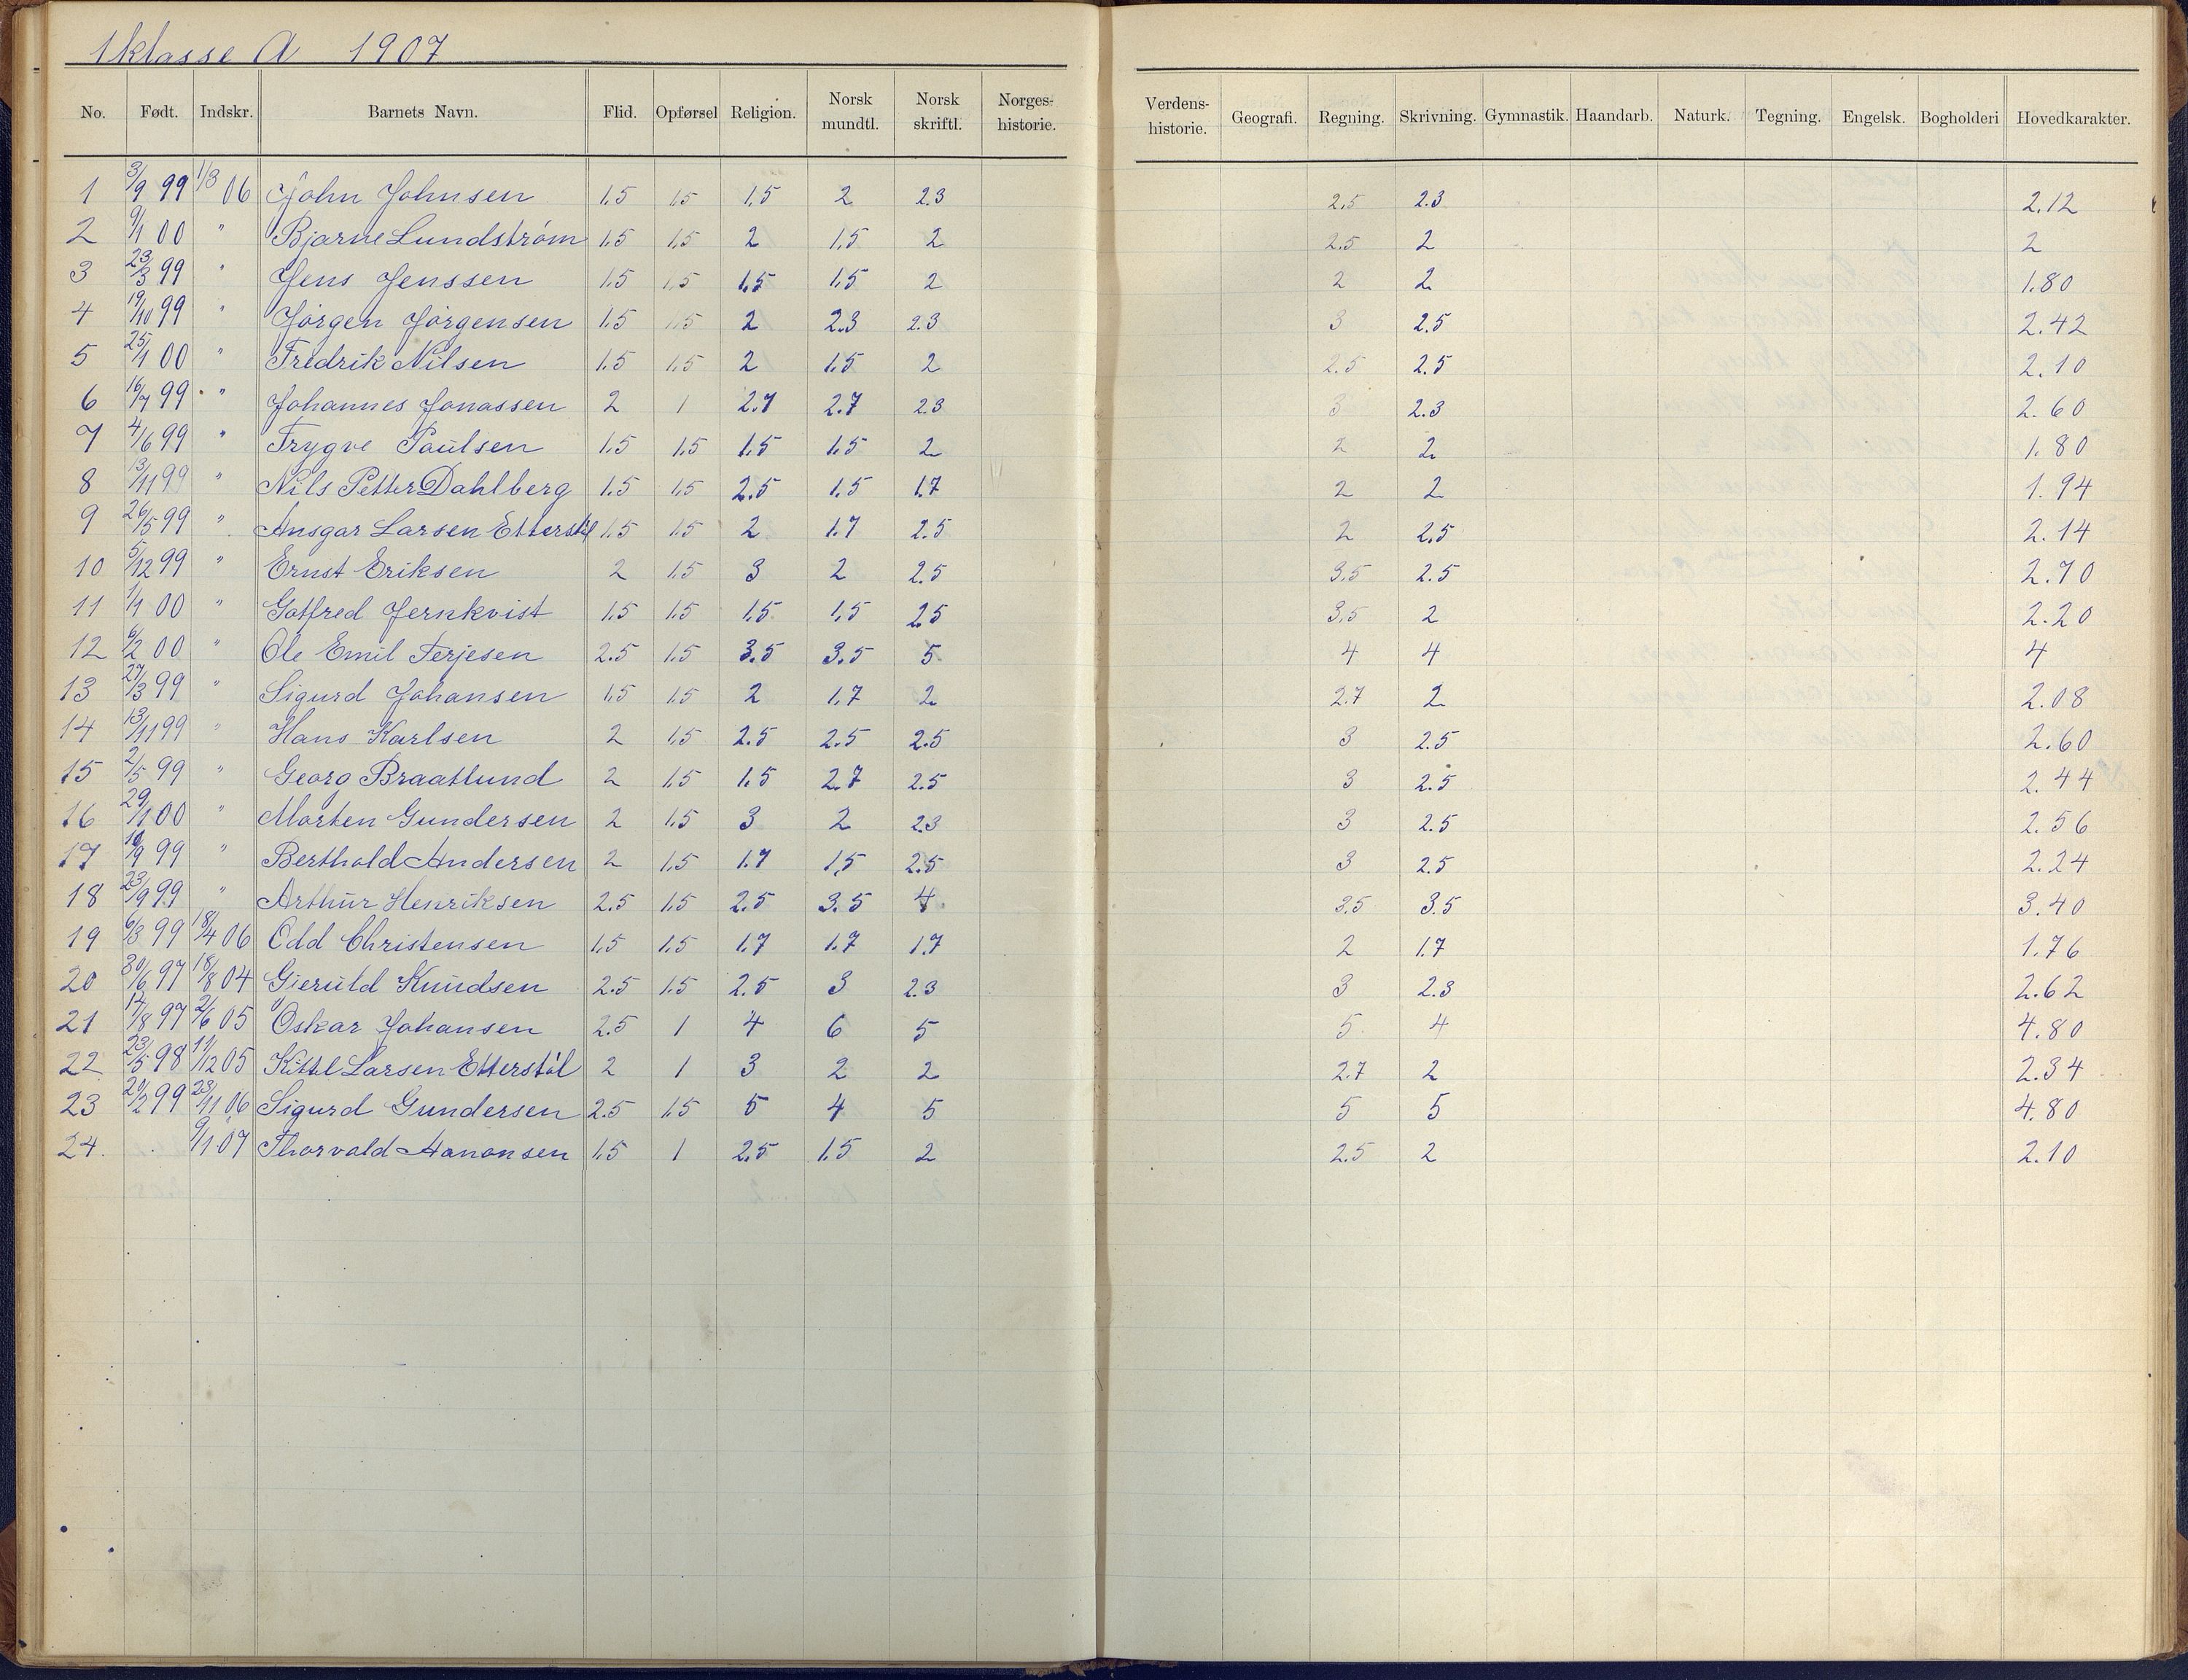 1 klasse A 1907
No. Født. Indskr. Barnets Navn. Flid. Opførsel Religion. Norsk mundtl. Norsk skriftl. Norges-historie. Verdens-historie. Geografi. Regning. Skrivning. Gymnastik. Haandarb. Naturk. Tegning. Engelsk. Bogholderi Hovedkarakter.
1 3/9 99 1/8 06 John Johnsen 1.5 1.5 1.5 2 2.3 2.5 2.3 2.12
2 9/1 00 " Bjarne Lundström 1.5 1.5 2 1.5 2 2.5 2 2
3 23/3 99 " Jens Jenssen 1.5 1.5 1.5 1.5 2 2 2 1.80
4 19/10 99 " Jörgen Jörgensen 1.5 1.5 2 2.3 2.3 3 2.5 2.42
5 25/1 00 " Fredrik Nilsen 1.5 1.5 2 1.5 2 2.5 2.5 2.10
6 16/7 99 " Johannes Jonassen 2 1 2.7 2.7 2.3 3 2.3 2.60
7 4/6 99 " Trygve Paulsen 1.5 1.5 1.5 1.5 2 2 2 1.80
8 13/11 99 " Nils Petter Dahlberg 1.5 1.5 2.5 1.5 1.7 2 2 1.94
9 26/5 99 " Ansgar Larsen Etterstøl 1.5 1.5 2 1.7 2.5 2 2.5 2.14
10 5/12 99 " Ernst Eriksen 2 1.5 3 2 2.5 3.5 2.5 2.70
11 1/1 00 " Gotfred Jernkvist 1.5 1.5 1.5 1.5 2.5 3.5 2 2.20
12 6/2 00 " Ole Emil Terjesen 2.5 1.5 3.5 3.5 5 4 4 4
13 27/3 99 " Sigurd Johansen 1.5 1.5 2 1.7 2 2.7 2 2.08
14 13/11 99 " Hans Karlsen 2 1.5 2.5 2.5 2.5 3 2.5 2.60
15 2/5 99 " Georg Braatlund 2 1.5 1.5 2.7 2.5 3 2.5 2.44
16 29/1 00 " Morten Gundersen 2 1.5 3 2 2.3 3 2.5 2.56
17 10/9 99 " Berthold Andersen 2 1.5 1.7 1.5 2.5 3 2.5 2.24
18 23/9 99 " Arthur Henriksen 2.5 1.5 2.5 3.5 4 3.5 3.5 3.40
19 6/3 99 18/4 06 Odd Christensen 1.5 1.5 1.7 1.7 1.7 2 1.7 1.76
20 30/6 97 18/8 04 Gieruld Knudsen 2.5 1.5 2.5 3 2.3 3 2.3 2.62
21 17/8 97 2/6 05 Oskar Johansen 2.5 1 4 6 5 5 4 4.80
22 23/5 98 11/12 05 Kittil Larsen Etterstöl 2 1 3 2 2 2.7 2 2.34
23 20/2 99 23/11 06 Sigurd Gundersen 2.5 1.5 5 4 5 5 5 4.80
24. 9/1 07 Thorvald Aanonsen 1.5 1 2.5 1.5 2 2.5 2 2.10